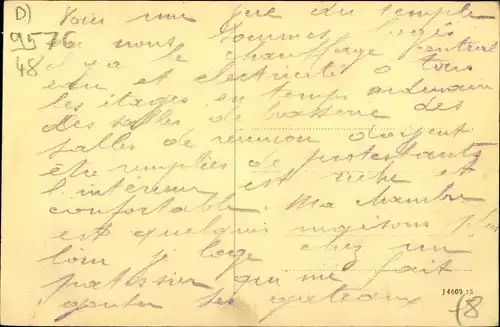 D)
9576
48
Voici une vue du temple
où nous sommes logés
il y a le chauffage central
eau et electricité a tous
les étages en temps ordinaire
des salles de
salles de reunion doivent
être remplies de protestants
l'interieur est riche et
confortable. Ma chambre
est quelques maisons plus
loin je loge chez un
patissier qui me fait
gouter ses gateaux
J 4609 15
(8